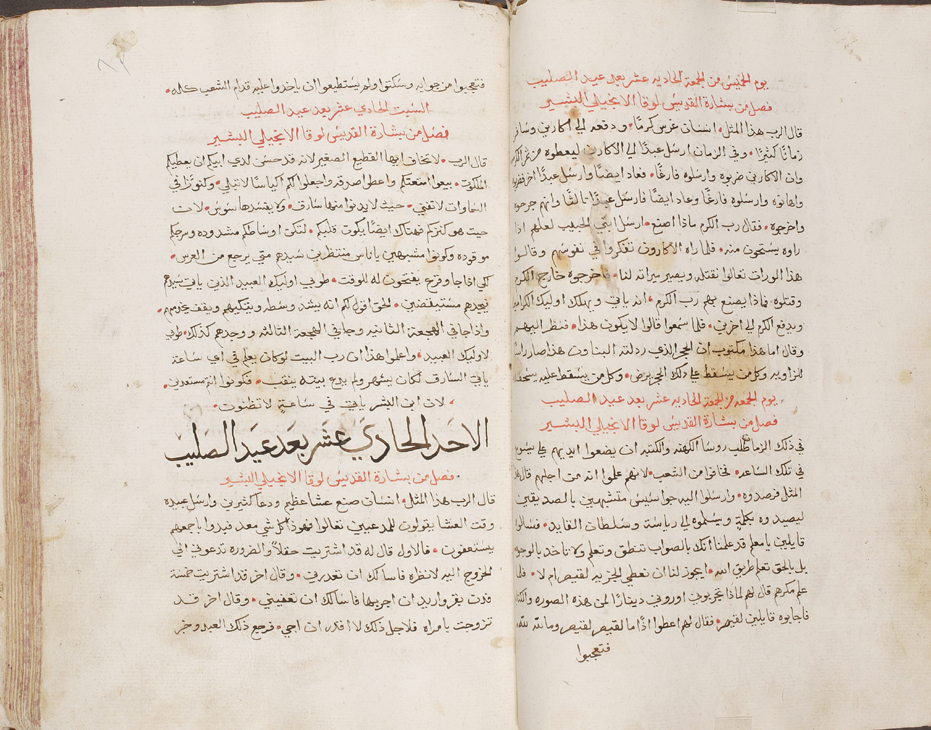 يوم الخميس من الجمعة الحاديه عشر بعد عيد الصليب
فصل من بشارة القديس لوقا الانجيلي البشير
قال الرب هذا المثل انسان غرس كرمًا ودفعه الي اكارين وسافر
زمانًا كثيرًا وفي الزمان ارسل عبدًا الي الاكارين ليعطوه من ثمر الكرم
وان الاكارين ضربوه وارسلوه فارغًا فعاد ايضًا وارسل عبدًا اخر فضربوه
واهانوه وارسلوه فارغًا وعاد ايضًا فارسل عبدًا ثالثًا وانهم جرحوه
واخرجوه فقال رب الكرم ماذا اصنع ارسل ابني الحبيب لعلهم اذا
راوه يستحون منه فلما راه الاكارون تفكروا في نفوسهم وقالوا
هذا الوارت تعالوا نقتله ويصير ميراته لنا فاخرجوه خارج الكرم
وقتلوه فماذا يصنع بهم رب الكرم انه ياتي ويهلك اوليك الاكرا
ويدفع الكرم الي اخرين فلما سمعوا قالوا لا يكون هذا فنظر اليهم
وقال اما هذا مكتوب ان الحجر الذي ردلته البناوون هذا صار راس
للزاويه وكل من يسقط علي ذلك الحجر يرض وكل من يسقط عليه يسحقه
يوم الجمعه من الجمعة الحاديه عشر بعد عيد الصليب
فصل من بشارة القديس لوقا الانجيلي البشير
في ذلك الزمان طلب روسا الكهنه والكتبه ان يضعوا ايديهم علي يسوع
في تلك الساعه فخافوا من الشعب لانهم علموا انه من اجلهم قال هذا
المثل فرصدوه وارسلوا اليه جواسيس متشبهين بالصديقين
ليصيدوه بكلمة ويسلموه الي رياسة وسلطان القايد فسالوا
قايلين يا معلم قد علمنا انك بالصواب تنطق وتعلم ولا تاخد بالوجوه
بل بالحق تعلم طريق الله ايجوز لنا ان نعطي الجزيه لقيصر ام لا فلما
علم مكرهم قال لهم لماذا تجربوني اوروني دينارًا لمن هذه الصوره والكتابه
فاجابوه قايلين لقيصر فقال لهم اعطوا اذًا ما لقيصر لقيصر وما لله لله
فتعجبوا
فتعجبوا من جوابه وسكتوا ولم يستطيعوا ان ياخدوا عليه قدام الشعب كله
السبت الحادي عشر بعد عيد الصليب
فصل من بشارة القديس لوقا الانجيلي البشير
قال الرب لا تخاف ايها القطيع الصغير لانه قد حسن لدي ابيكم ان يعطيكم
الملكوت بيعوا امتعتكم واعطوا صدقه واجعلوا لكم اكياسًا لا تبلي وكنوزًا في
السماوات لا تفني حيث لا يدنوا منها سارق ولا يفسدها سوس لان
حيت هو كنزكم فهناك ايضًا يكون قلبكم لتكن اوساطكم مشدوده وسرجكم
موقوده وكونوا مشبهين باناس منتظرين سيدهم متي يرجع من العرس
كي اذا جا وقرع يفتحون له للوقت طوبي اوليك العبيد الذين ياتي سيدهم
فيجدهم مستيقضين الحق اقول لكم انه يشد وسطه ويتكيهم ويقف يخدمهم
واذا جا في الهجعة الثانيه وجا في الهجعة الثالثه ووجدهم كذلك طوبي
لاوليك العبيد واعلموا هذا ان رب البيت لو كان يعلم في اي ساعة
ياتي السارق لكان يسهر ولم يدع بيته ينقب فكونوا انتم مستعدين
لان ابن البشر ياتي في ساعة لا تظنون
الاحد الحادي عشر بعد عيد الصليب
فصل من بشارة القديس لوقا الانجيلي البشير
قال الرب هذا المثل انسان صنع عشا عظيم ودعا كثيرين وارسل عبده
وقت العشا يقولون للمدعيين تعالوا فهوذا كل شي معد فبدوا باجمعهم
يستعفون فالاول قال له قد اشتريت حقلاً والضروره تدعوني الي
الخروج اليه لانظره فاسالك ان تعدرني وقال اخر قد اشتريت خمسة
فدت بقر واريد ان اجربها فاسالك ان تعفيني وقال اخر قد
تزوجت بامراه فلاجل ذلك لا اقدر ان اجي فرجع ذلك العبد وخبر